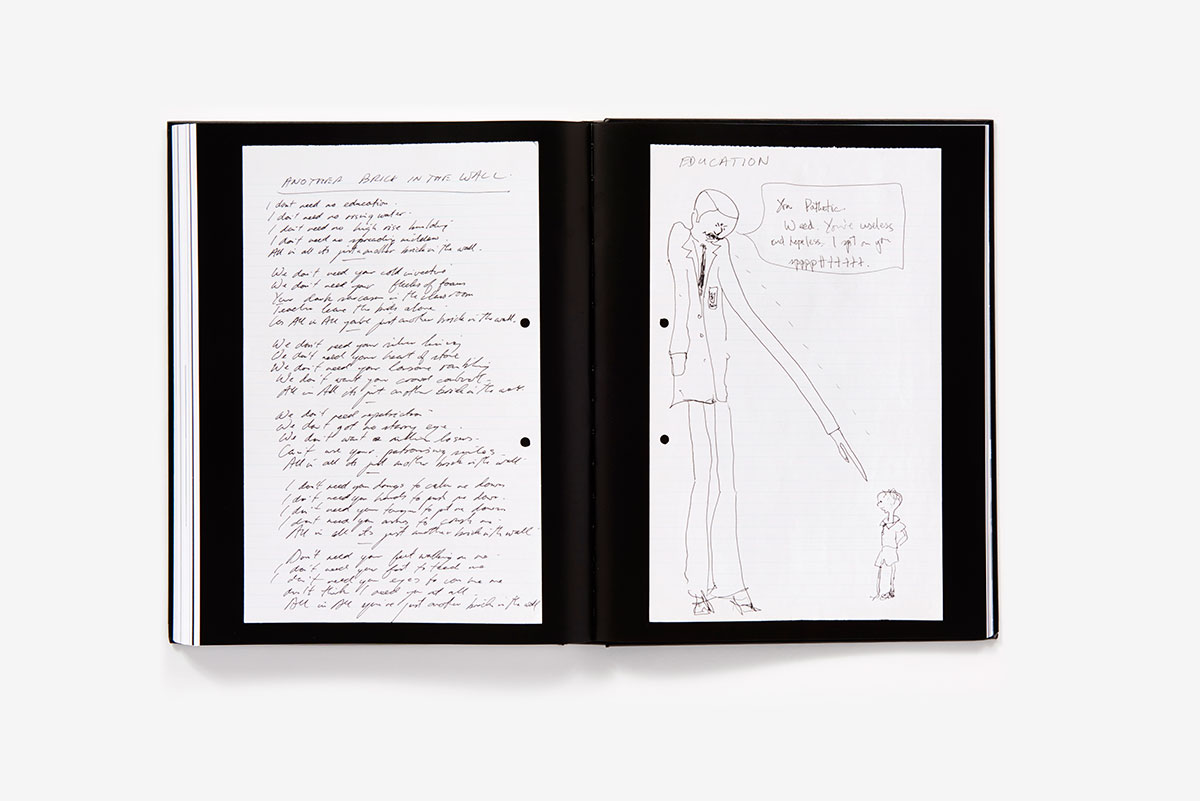 ANOTHER BRICK IN THE WALL.
I dont need no education.
I don't need no rising water.
I don't need no high rise building
I don't need no spreading
All in all its just another brick in the wall.
We don't need your cold
We don't need your flecks of foam
Your dark sarcasm in the classroom
Teacher leave the kids alone
All in All you're just another brick in the wall.
We don't need your silver lining
We don't need your heart of stone
We don't need your rambling
We don't want your crowd control.
All in All its just another brick in the wall
We don't need
We don't got no starry eye.
We don't want losers.
Can't use your patronising smiles
All in all its just another brick in the wall
I don't need your drugs to calm me down
I don't need your hands to push me down.
I don't need your to put me down
I dont need your to crush me.
All in all its just another brick in the wall
Don't need your feet walking on me.
I don't need your to teach me
I don't need your eyes to con me
don't think I need you at all.
All in All you're just another brick in the wall
EDUCATION
You Pathetic
Weed. You're useless
and hopeless. I spit on you